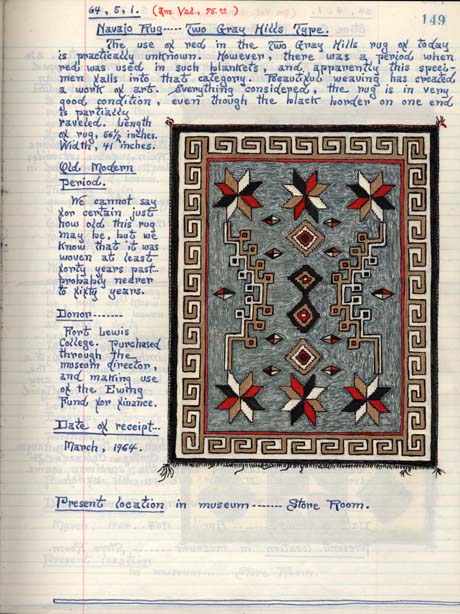 64, 5, 1. (Am. Val., 75.00)
149
Navajo Rug---- Two Gray Hills Type.
The use of red in the Two Gray Hills rug of today
is practically unknown. However, there was a period when
red was used in such blankets, and, apparently this speci-
men falls into that category. Beautiful weaving has created
a work of art. Everything considered, the rug is in very
good condition, even though the black border on one end
is partially
raveled. Length
of rug, 56½ inches.
Width, 41 inches.
Old Modern
Period.
We cannot say
for certain just
how old this rug
may be, but we
know that it was
woven at least
forty years past--
probably nearer
to fifty years.
Donor-------
Fort Lewis
College. Purchased
through the
museum director,
and making use
of the Ewing
Fund for finance.
Date of receipt---
March, 1964.
Present location in museum------- Store Room.